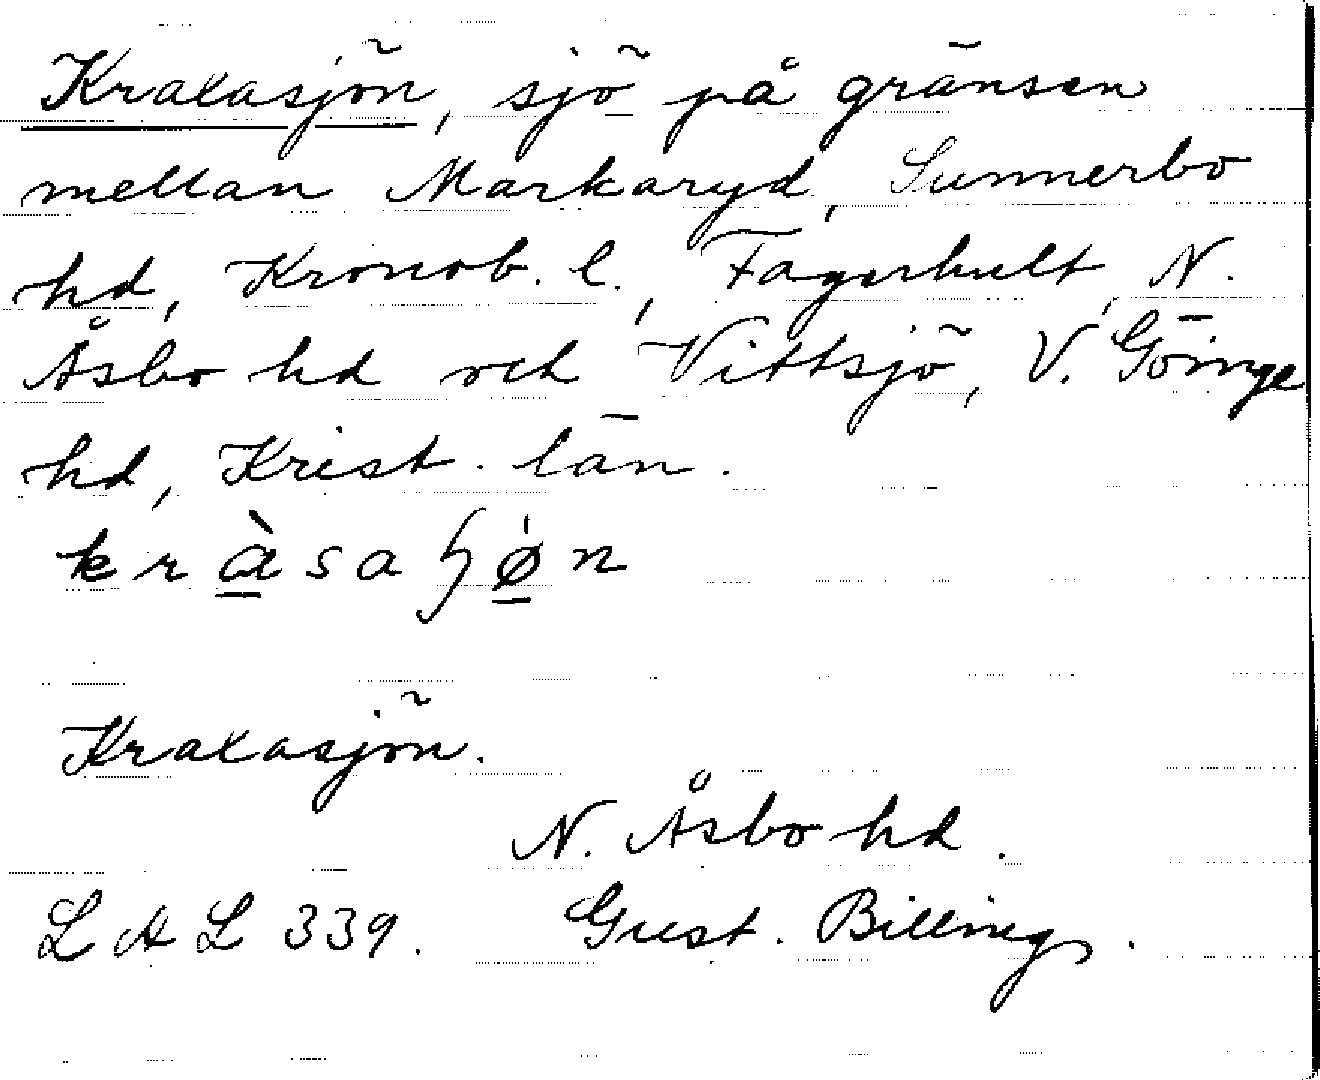 Kraxasjön, sjö på gränsen
mellan Markaryd, Sunnerbo
hd, Kronob. l., Fagerhult, N.
Åsbo hd och Vittsjö, V. Göinge
hd, Krist. län.
Kraxasjön.
N. Åsbo hd.
LAL 339. Gust. Billing.